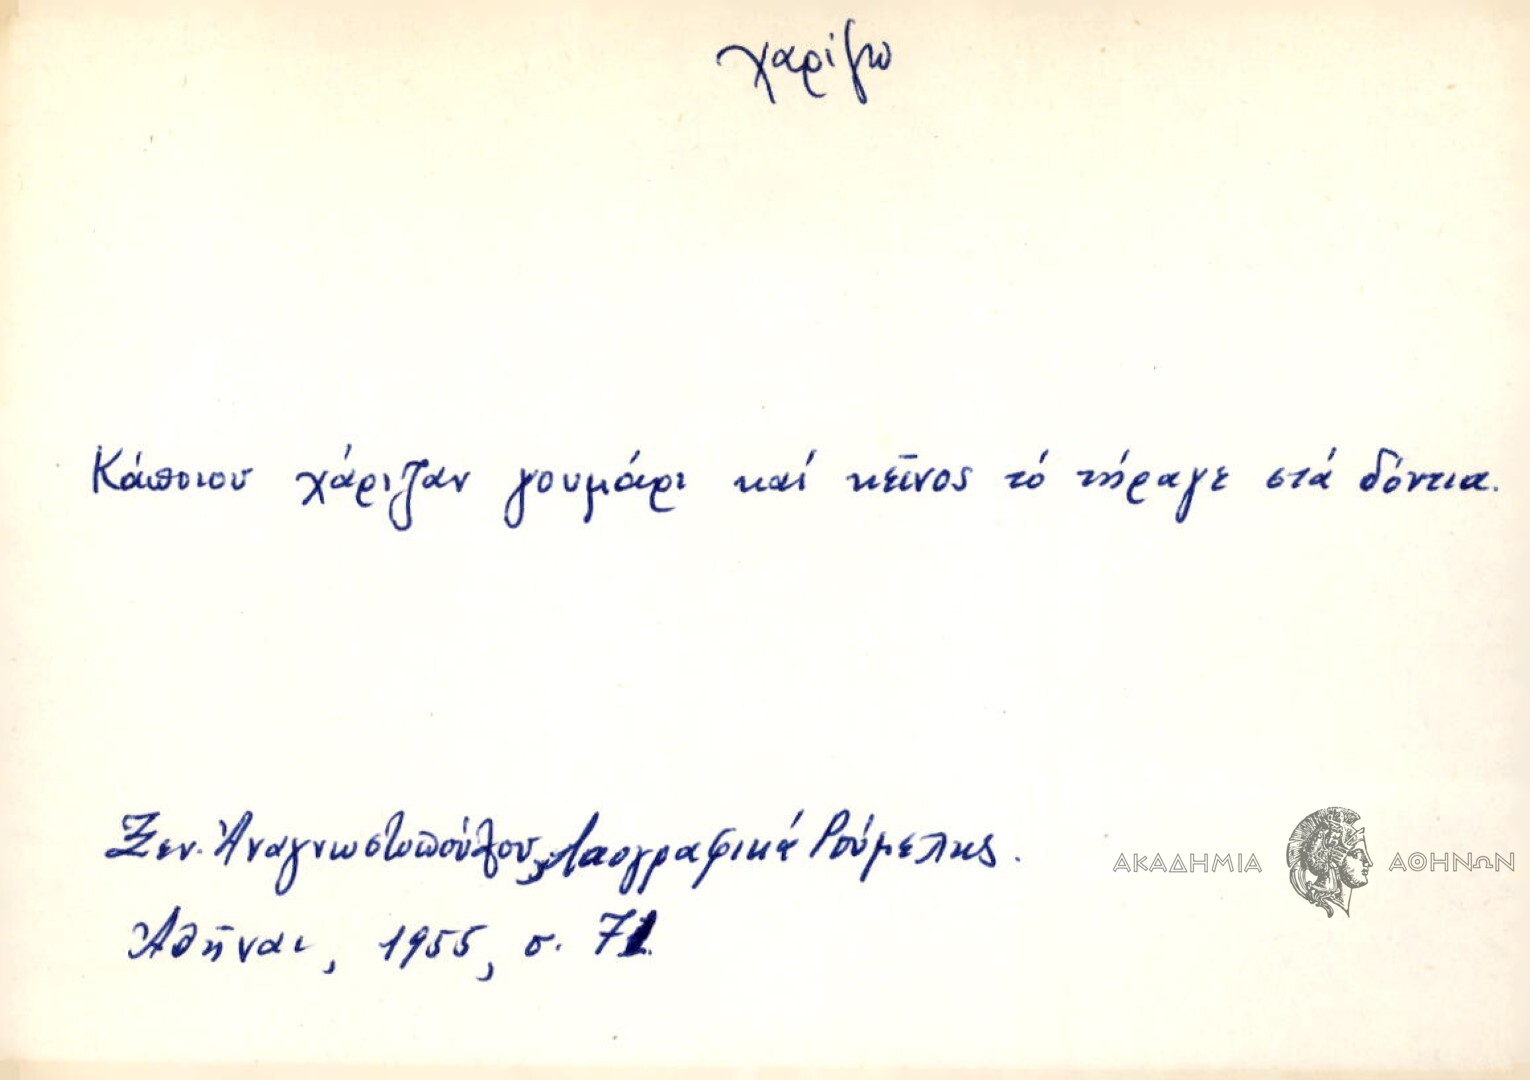 χαρίζω
Κάποιου χάριζαν γουμάρι καί κεῖνος τό τήραγε στά δόντια.
Ξεν. Ἀναγνωστοπούλου, Λαογραφικά Ρούμελης.
Ἀθῆναι, 1955, σ. 71
ΑΚΑΔΗΜΙΑ ΑΘΗΝΩΝ